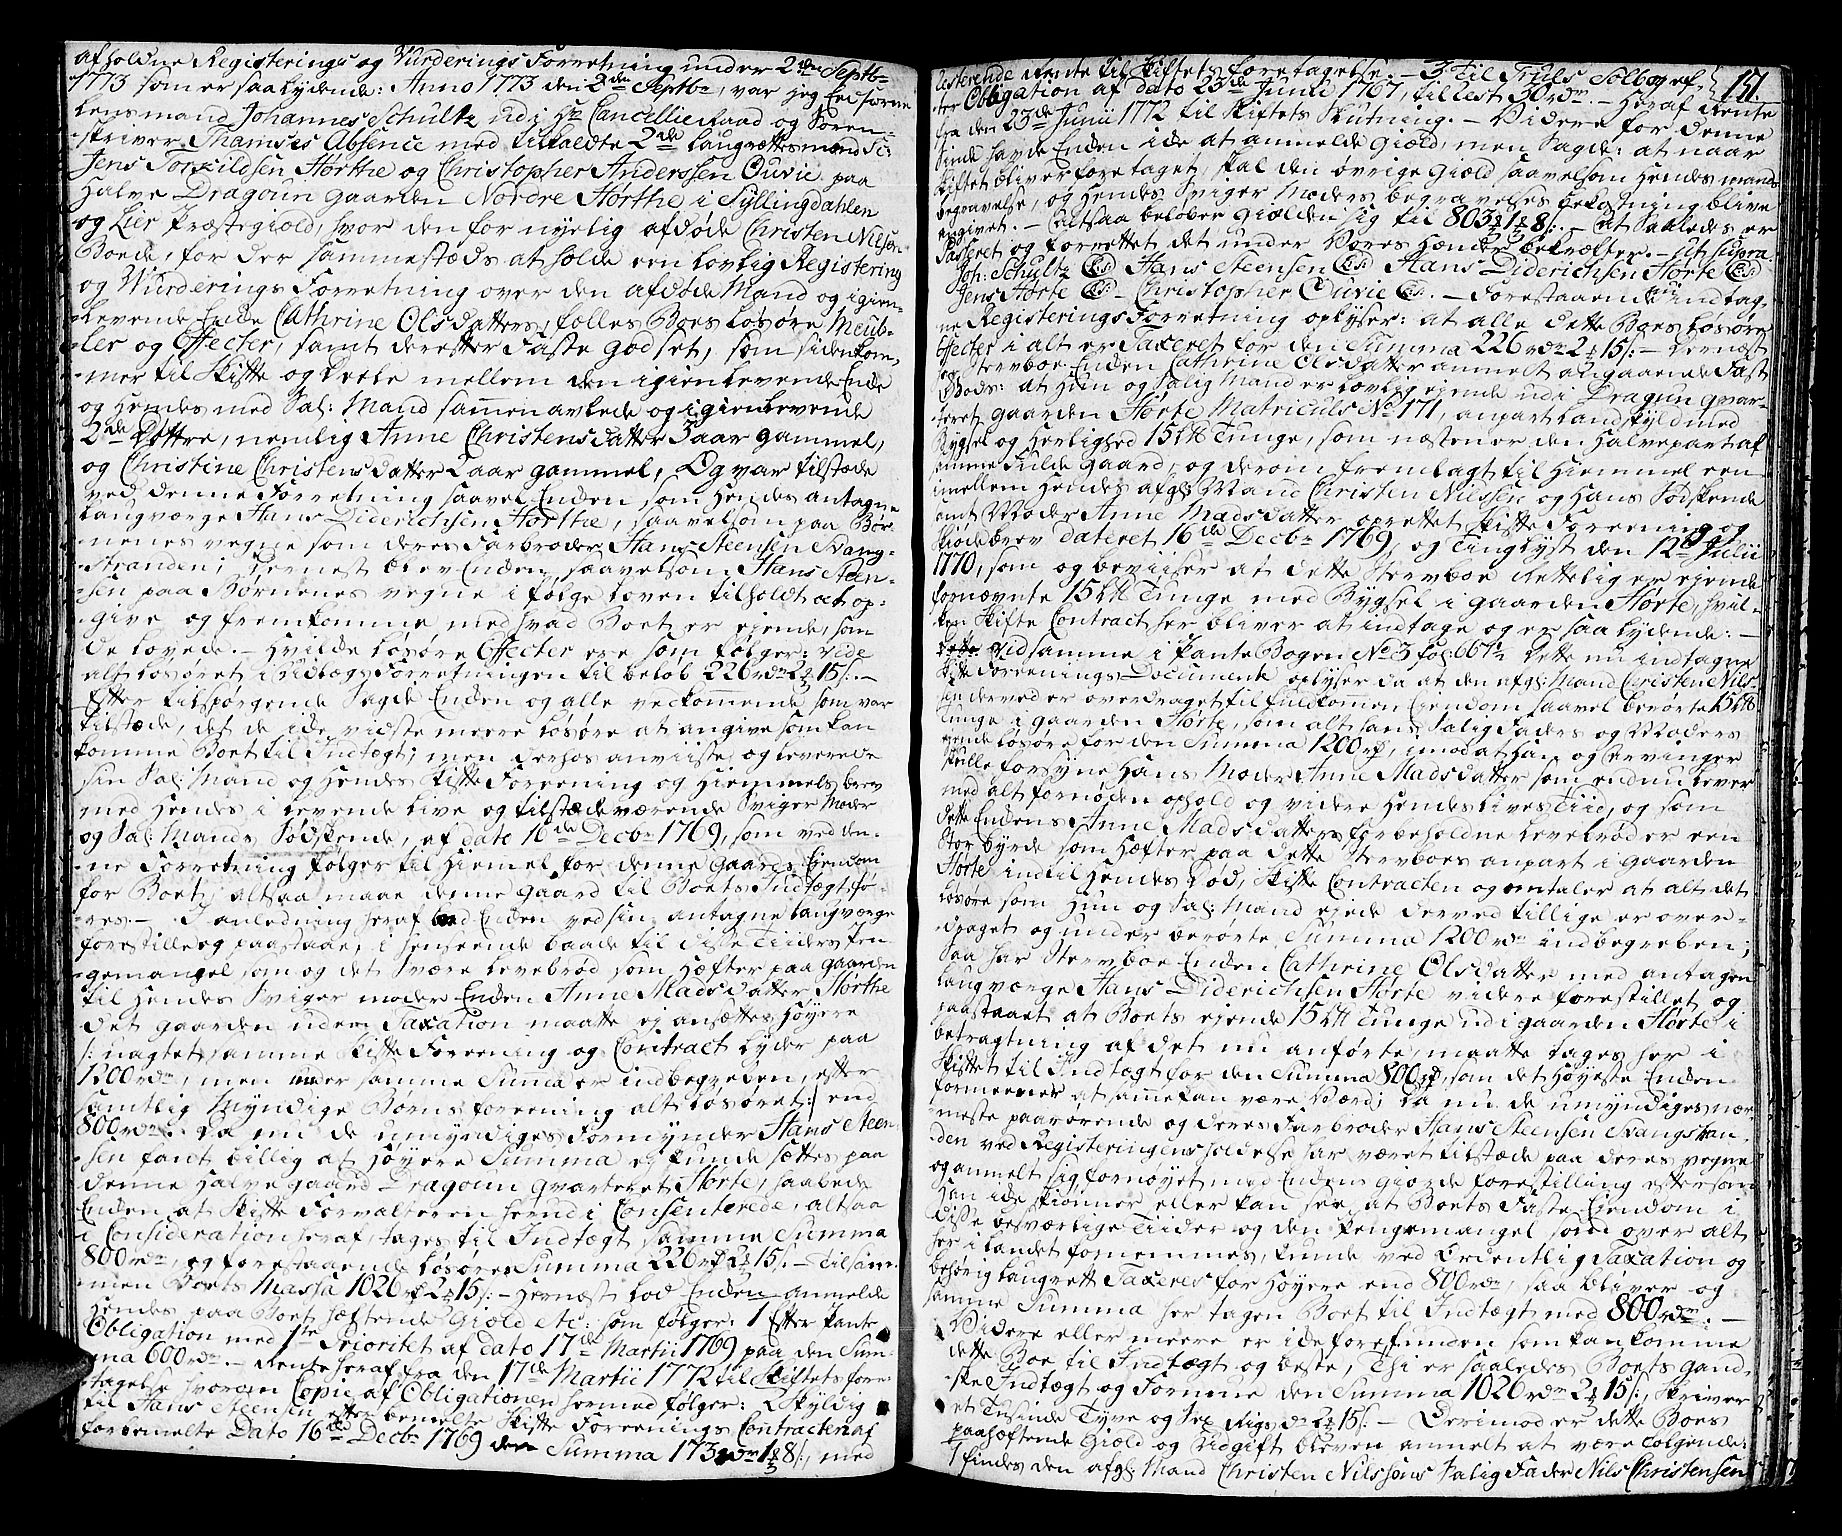 afholdne Registerings og Vurderings Forretning under 2den Septbr
1773 som er saa lydende: Anno 1773 den 2den Septbr, var jeg Eedsorne
Lensmand Johannes Schultz udi Hr Cancellie Raad og Soren-
skriver Thamses Absence med tilkaldte 2de Laugrettesmænd Sc:
Jens Torkildsen Hörthe og Christopher Anderssen Ouvie paa
halve Dragoun gaarden Nordre Hörthe i Syllingdahlen
og Lier Præstegiold, hvor den for nyelig afdöde Christen Nilson
Boede, for der sammestæds at holde een lovlig Registering
og Vurderings Forretning over den afdöde Mand og igien-
levende Enke Cathrine Olsdatters fælles Boes Lösöre, Meub-
ler og Effecter, samt derefter Faste godset, som siden kom-
mer til Skifte og Deele mellem den igienlevende Enke
og hendes med Sal: Mand sammen avlede og igienlevende
2de Döttre, nemlig Anne Christensdatter 3 aar gammel,
og Christine Christensdatter 2 aar gammel, Og var tilstæde
ved denne Forretning saavel Enken som hendes antagne
Laugværge Hans Diderichsen Hörthe, saavelsom paa Bör-
nenes vegne som deres Farbroder Hans Steensen Svang-
stranden; Dernest blev Enken saavelsom Hans Steen-
sen paa Börnenes vegne i fölge Loven tilholdt at op-
give og fremkomme med hvad Boet er ejende, som
de lovede. - Hvilke lösöre Effecter ere som fölger: Vide
alt lösöret i Forretningen til belöb 226 rdr 2 15 s. -
Efter tilspörgende Sagde Enken og alle vedkommende som var
tilstæde, det de ide vidste meere lösöre at angive som kan
komme Boet til Indtægt; men derhos anviiste og leverede
sin Sal: Mand og hendes Skifte Foreening og Hiemmels brev
med hendes i levende live og tilstædeværende Sviger Moder
og Sal: Mands Södskende, af dato 16de Decbr 1769, som ved den-
ne Forretning fölger til Hiemel for denne Gaards Ejendom
for Boet, altsaa maae denne gaard til Boets Indtægt fö-
res. - I anledning heraf Enken ved sin antagne Laugværge
forestille og paastaae, i henseende baade til disse Tiiders Pen-
gemangel som og det Svære Levebröd som hæfter paa Gaarden
til hendes Sviger moder Enken Anne Madsdatter Hörthe
det gaarden uden Taxation maatte ej ansættes Höyere
/: uagtet samme Skifte Foreening og Contract lyder paa
1200 rdr, men under samme Suma er indbegreben, efter
samtlig Myndige Börns foreening alt lösöret :/ end
800 rdr. Da nu de umyndiges Formynder Hans Steen-
sen fandt billig at Höyere Summa ej kunde sættes paa
denne halve gaard Dragoun Qvarteret Hörte, saa lode
Enken at Skifte Forvalteren herudi Consenterede, altsaa
i Consideration heraf, tages til Indtægt samme Summa
800 rdr, og forestaaende lösöres Summa 226 rd 2 15 s. - Tilsam-
men Boets Massa 1026 rd 2 15 s: - Hernæst lod Enken anmelde
hendes paa Boet hæftende Giæld etc: som fölger: 1 Efter Pante
Obligation med 1te Prioritet af dato 17de Martii 1769 paa den Sum-
ma 600 rdr. - Rente heraf fra den 17de Martii 1772 til Skiftets fore-
tagelse hvoren Copie af Obligationen hermed fölger: 2 Skyldig
til Hans Steensen efter bemelte Skifte Foreenings Contract af
forbemelte Dato 16de Decbr 1769 den Summa 173 rdr 1 8 s:, med
151.
resterende Rente til Skiftets foretagelse. - 3 Til Truls Solberg ef-
ter Obligation af dato 23de Junii 1767, til rest 30 rdr. - Heraf Rente
fra den 23de Junii 1772 til Skiftets Slutning. - Videre for denne
Sinde havde Enken ide at anmelde Giæld, men Sagde: at naar
Skiftet bliver foretaget, skal den övrige Giæld saavelsom hendes mands
begravelse, og hendes Sviger Moders begravelses bekostning blive
angivet. - Altsaa belöber Giælden sig til 803 1 8 s. - At Saaledes er
Passeret og forrettet, det under Vores Hænder bekræfter. - Ut Supra
Joh: Schultz (L:S:) Hans Steensen (L:S:) Hans Diderichsen Hörte (L:S:)
Jens Hörte (L:S:) - Christopher Ouvie (L:S:). - Forestaaende indtag-
ne Registerings Forretning oplyser: at alle dette Boes Lösöre
Effecter i alt er Taxeret for den Summa 226 rdr 2 15 s: - Dernæst
har Stervboe Enken Cathrine Olsdatter anmelt angaaende Fast
Gods: at hun og Salig Mand er lovlig ejende udi Dragun Qvar-
teret Gaarden Hörte Matriculs No 171, anpart Landskyld med
Bygsel og Herlighed 15 Lt Tunge, som næsten er den halvepart af
samme Fulde Gaard, og derom fremlagt til Hiemmel een
imellem hendes afg: Mand Christen Nilssen og Hans Södskende
samt Moder Anne Madsdatter oprettet Skifte Foreening og
Skiöde brev dateret 16de Decbr 1769, og Tinglyst den 12te Julii
1770, som og beviiser at dette Stervboe Rettelig er ejende
fornævnte 15 Lt Tunge med Bygsel i gaarden Hörte, hvil-
ken Skifte Contract her bliver at indtage og er saa lydende: -
Vid samme i Pante Bogen No 3 fol: 661. Dette nu indtagne
Skifte Foreenings Document oplyser da at den afg: Mand Christen Nils-
sen derved er overdraget til Fuldkomen Ejendom saavel berörte 15 Lt
Tunge i gaarden Hörte, som alt hans Salig Faders og Moders
ejende lösöre for den Summa 1200 rd, imod at Han og Arvinger
skulle forsyne Hans Moder Anne Madsdatter som endnu lever
med alt fornöden ophold og videre Hendes Lives Tiid, og som
dette Enkens Anne Madsdatters forbeholdne Levebröd er een
stor byrde som hæfter paa dette Stervboes anpart i gaarden
Hörte indtil Hendes Död, Skifte Contracten og omtaler at alt det
lösöre som Hun og Sal: Mand ejede derved tillige er over-
draget og under berörte Summa 1200 rdr indbegreben;
Saa har Stervboe Enken Cathrine Olsdatter med antagen
Laugværge Hans Diderichsen Hörte videre forestillet og
paastaaet at Boets ejende 15 Lt Tunge udi gaarden Hörte i
betragtning af det nu anförte, maatte tages her i
Skiftet til Indtægt for den Summa 800 rd, som det Höyeste Enken
formeener at samme kan være Værd; Da nu de umyndiges nær-
meste paarörende og deres Farbroder Hans Steensen Svangstran-
den ved Registeringens holdelse har været tilstæde paa deres vegne
og anmelt sig fornöyet med Enkens Giorde forestilling eftersom
Han ide skiönner eller kan see at Boets Faste Ejendom i
disse besværlige Tiider og den Pengemangel som over alt
her i Landet fornemmes, kunde ved Ordentlig Taxation og
behörig Laugrett Taxeres for Höyere end 800 rdr, saa bliver og
samme Summa her tagen Boet til Indtægt med 800 rdr. -
Videre eller meere er ide forefunden som kan komme
dette Boe til Indtægt og beste, Thi er saaledes Boets Gand-
ske Indtægt og Formue den Summa 1026 rdr 2 15 s:, Skriver
et Tusinde Tyve og Sex Rigsdr 2 15 s: - Derimod er dette Boes
paahæftende Giæld og Udgift bleven anmelt at være Fölgende:
1 findes den afg: Mand Christen Nilssöns Salig Fader Nils Christensen